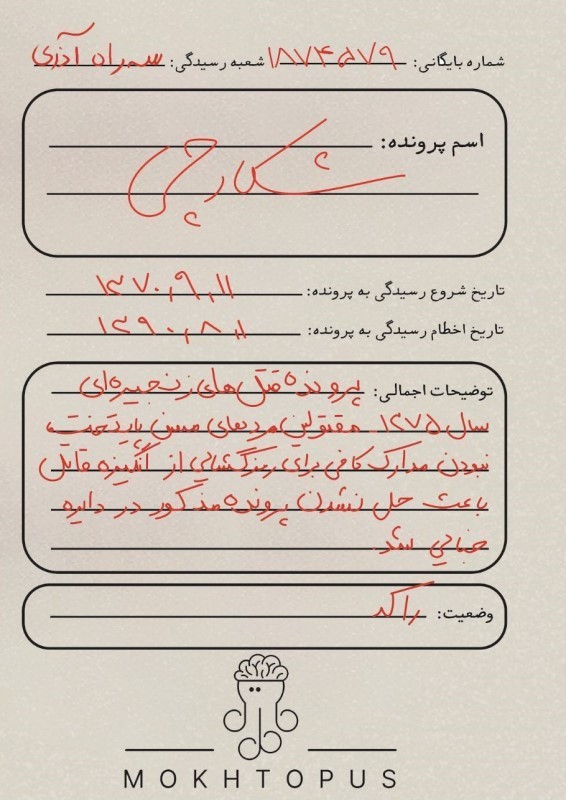 شماره بایگانی: ۱۸۷۴۵۷۹ شعبه رسیدگی: سهراه آذری
اسم پرونده:
شکارچی
تاریخ شروع رسیدگی به پرونده: ۱۳۷۰,۹,۱۱
تاریخ اخطام رسیدگی به پرونده: ۱۳۹۰,۸,۱۱
توضیحات اجمالی: پرونده قتل‌های زنجیره‌ای
سال ۱۳۷۵. مقتولین مردهای مسن پایتخت،
نبودن مدارک کافی برای رمزگشایی از انگیزه قاتل
باعث حل نشدن پرونده مذکور در دایره
جنایی شد.
وضعیت: راکد
MOKHTOPUS